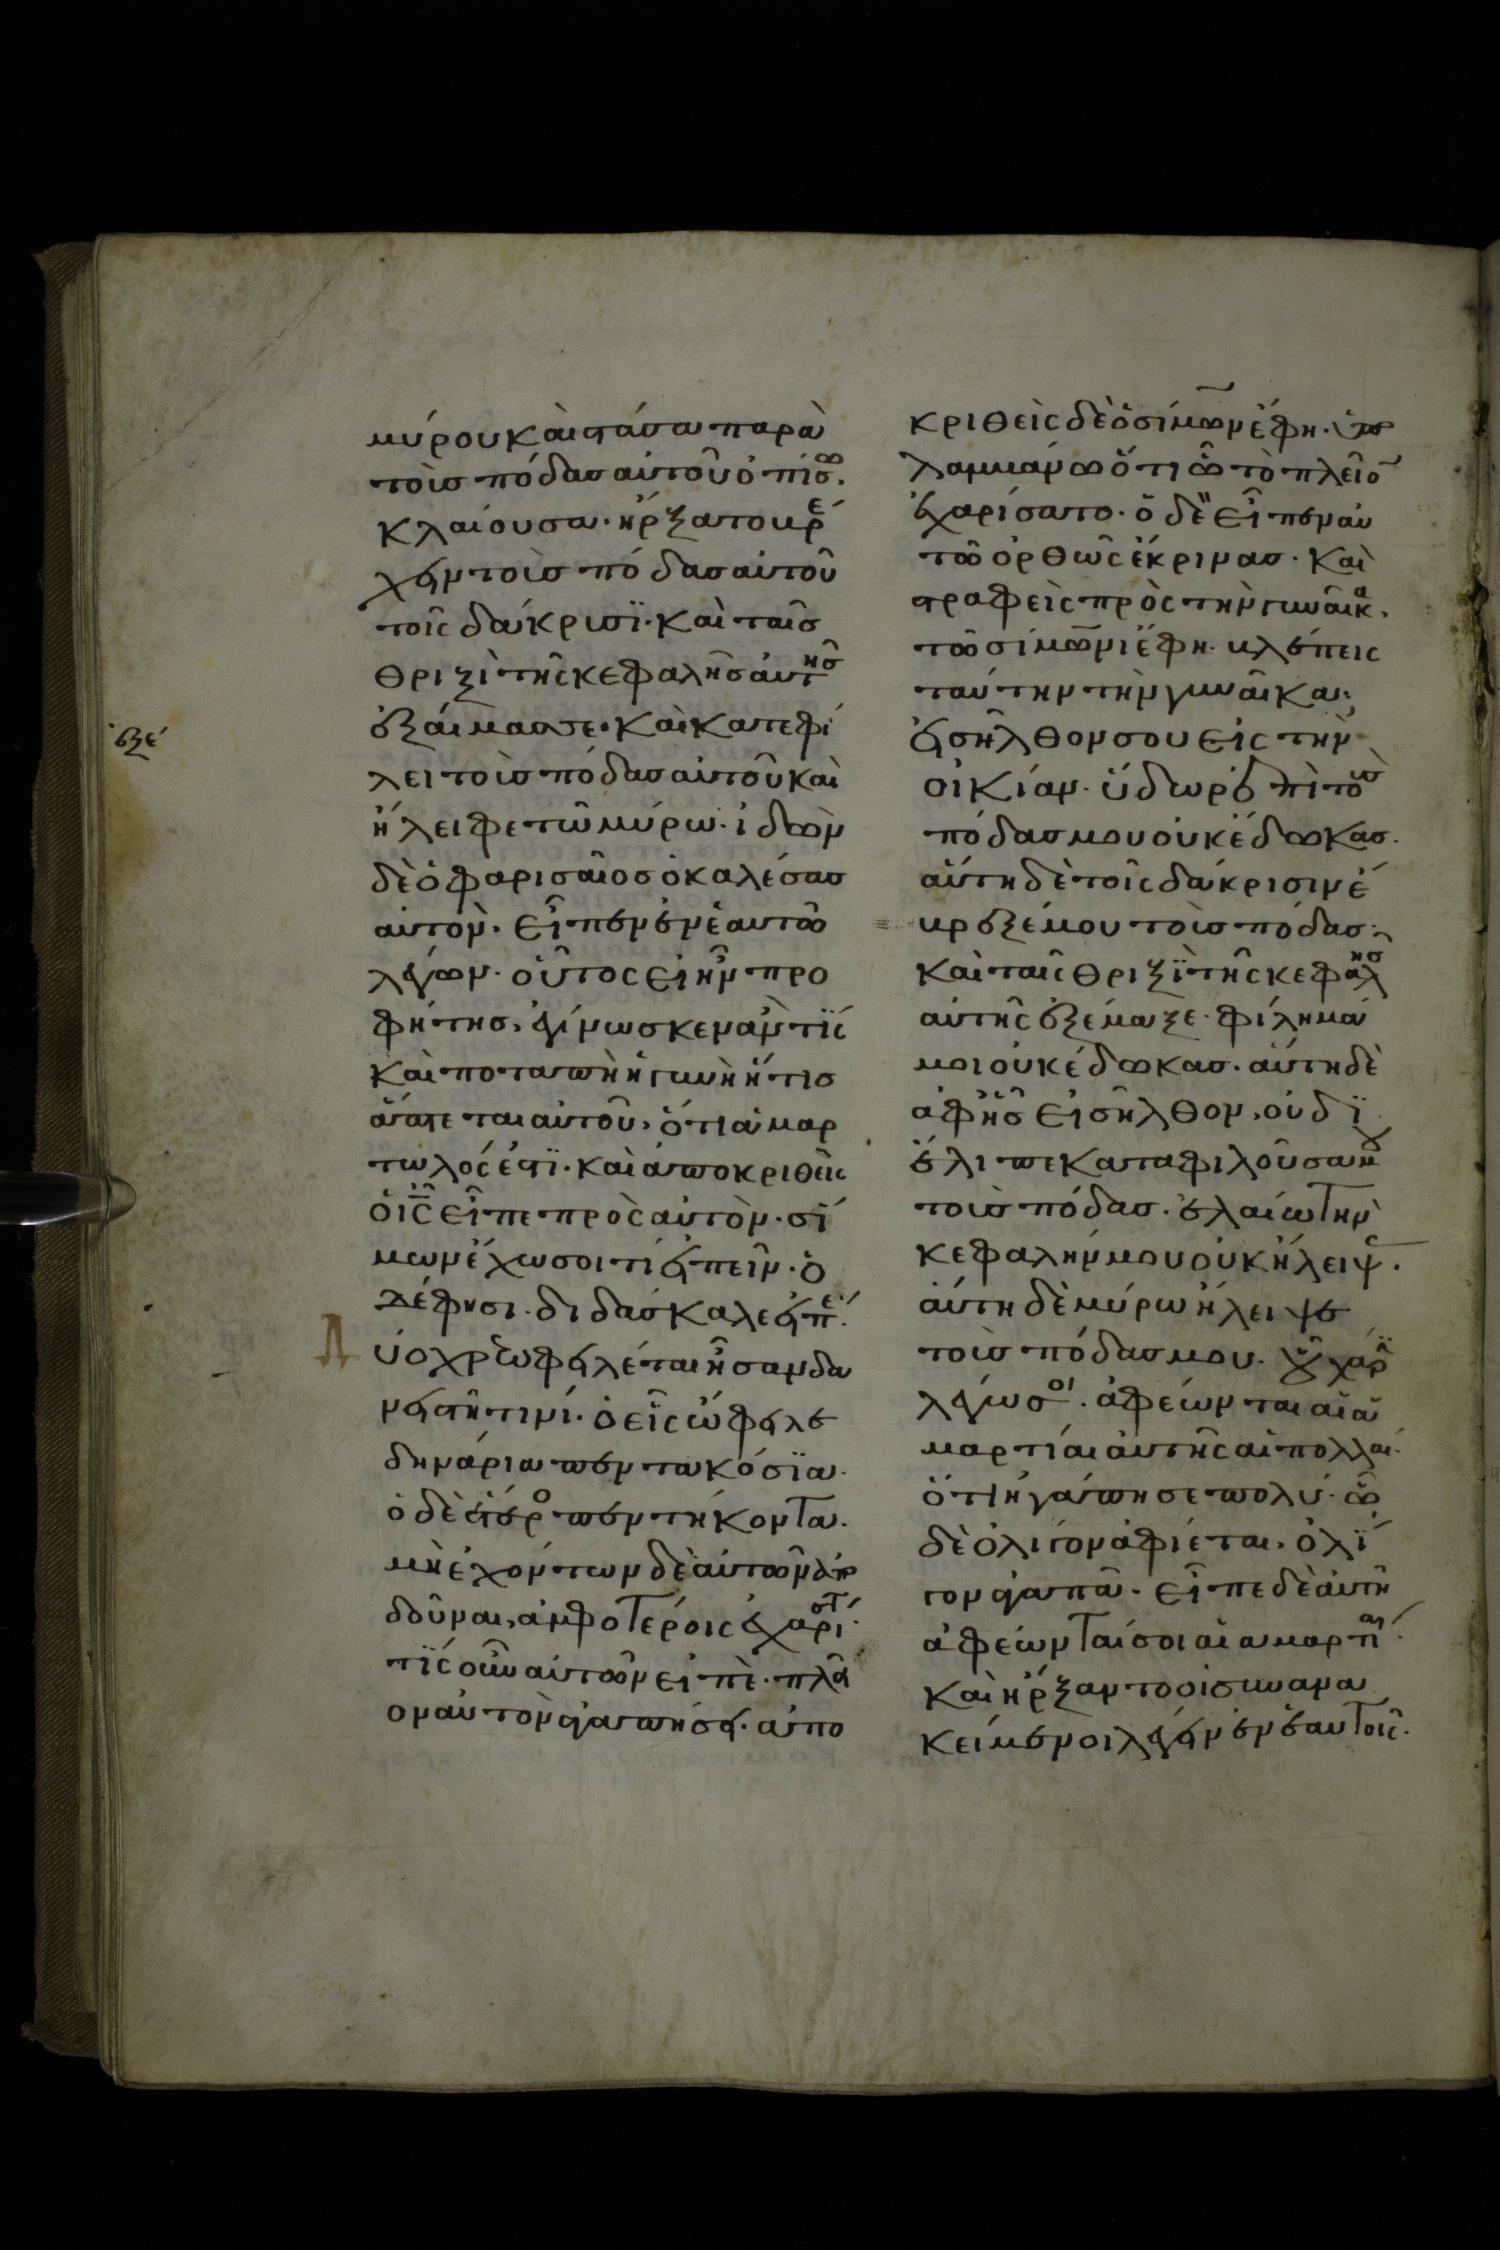 μύρου καὶ στᾶσα παρὰ
τοὺς πόδας αὐτοῦ ὀπίσω.
κλαίουσα. ἤρξατο βρέ
χειν τοὺς πόδας αὐτοῦ
τοῖς δάκρυσϊ. καὶ ταῖς
θριξὶ τῆς κεφαλῆς αὐτῆς
ἐξέμασσε. καὶ κατεφί
λει τοὺς πόδας αὐτοῦ καὶ
ἤλειφε τῶ μύρω. ἰδὼν
δὲ ὁ φαρισαῖος ὁ καλέσας
αὐτὸν. εἶπεν ἐν ἑαυτῶ
λέγων. οὗτος εἰ ἦν προ
φήτης, ἐγίνωσκεν ἂν τΐς
καὶ ποταπὴ ἡ γυνὴ ἥτις
ἅπτεται αὐτοῦ, ὅτι ἁμαρ
τωλός ἐστϊ. καὶ ἀποκριθεὶς
ὁ ις εἶπε πρὸς αὐτὸν. σί
μων ἔχω σοι τί εἰπεῖν. ὁ
δέ φησι. διδάσκαλε εἰπέ.
Δ
ύο χρεωφειλέται ἦσαν δα
νειστῆ τινί. ὁ εἷς ὤφειλε
δηνάρια πεντακόσϊα.
ὁ δὲ ἕτερο πεντήκοντα.
μὴ ἐχόντων δὲ αὐτῶν ἀπο
δοῦναι, ἀμφοτέροις ἐχαρίστ.
τΐς οὖν αὐτῶν εἰπὲ. πλεῖ
ον αὐτὸν ἀγαπήσει. ἀπο
κριθεὶς δὲ ὁ σίμων ἔφη. ὑπο
λαμβάνω ὅτι ὧ τὸ πλεῖο
ἐχαρίσατο. ὁ δὲ εἶπεν αὐ
τῶ ὀρθῶς ἔκρινας. καὶ
στραφεὶς πρὸς τὴν γυναῖκα.
τῶ σίμωνι ἔφη. βλέπεις
ταύτην τὴν γυναῖκα;
εἰσῆλθον σου εἰς τὴν
οἰκίαν. ὕδωρ ἐπὶ τοὺς
πόδας μου οὐκ ἔδωκας.
αὕτη δὲ τοῖς δάκρυσιν ἔ
βρεξέ μου τοὺς πόδας.
καὶ ταῖς θριξῒ τῆς κεφαλης
αὐτῆς ἐξέμαξε. φίλημά
μοι οὐκ ἔδωκας. αὕτη δὲ
ἀφ ἧς εἰσῆλθον, οὐ δϊ
έλιπε καταφιλοῦσα μου
τοὺς πόδας. ἐλαίω τὴν
κεφαλήν μου οὐκ ἤλειψ.
αὕτη δὲ μύρω ἤλειψε
τοὺς πόδας μου. οὗ χάρϊ
λέγω σοι. ἀφέωνται αἱ ἁ
μαρτίαι αὐτῆς αἱ πολλαί.
ὅτι ἠγάπησε πολύ. ὧ
δὲ ὀλίγον ἀφίεται. ὀλΐ
γον ἀγαπᾶ. εἶπε δὲ αὐτῆ
ἀφέωνταί σοι αἱ αμαρτίαι.
καὶ ἤρξαντο οἱ συνανα
κείμενοι λέγειν ἐν ἑαυτοῖς.